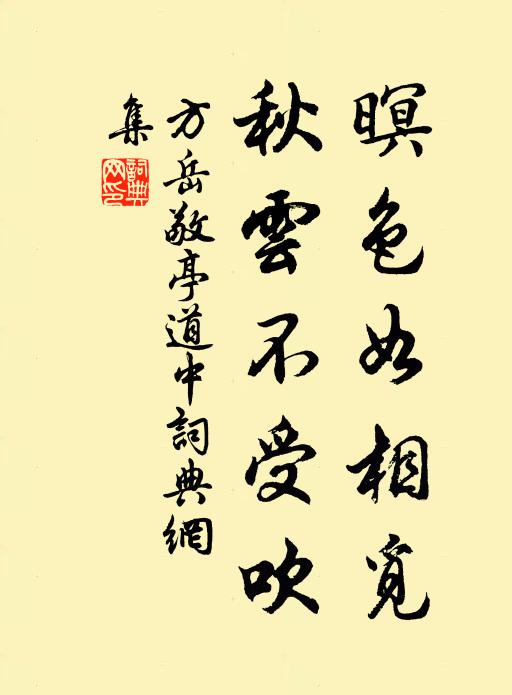 暝色如相覓
秋雲不受吹
方岳敬亭道中詞典網
集
詞典
網印